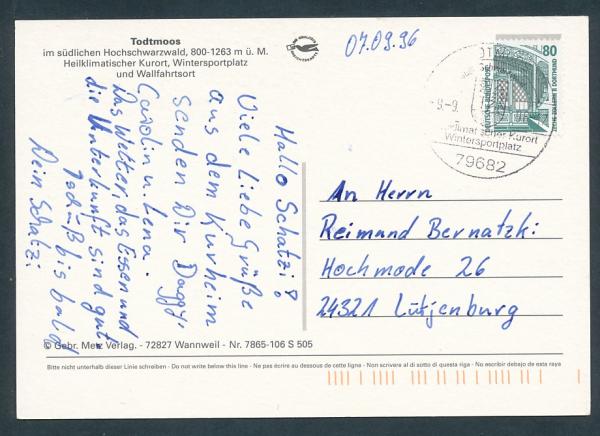 Todtmoos
im südlichen Hochschwarzwald, 800-1263 m ü. M.
Heilklimatischer Kurort, Wintersportplatz
und Wallfahrtsort
07.09.96
80
DEUTSCHE BUNDESPOST
ZECHE ZOLLERN II DORTMUND
-9.-9.
Kurort
Wintersportplatz
79682
Hallo Schatzi!
Viele Liebe Grüße
aus dem Kurheim
senden Dir Daggy,
Carolin u. Lena.
Das Wetter, das Essen und
die Unterkunft sind gut.
Tschüß bis bald
Dein Schatzi
An Herrn
Reimund Bernatzki
Hochmode 26
24321 Lütjenburg
© Gebr. Metz Verlag. - 72827 Wannweil - Nr. 7865-106 S 505
Bitte nicht unterhalb dieser Linie schreiben - Do not write below this line - Ne pas écrire au dessous de cette ligne - Non scrivere al di sotto di questa riga - No escribir debajo de esta raya